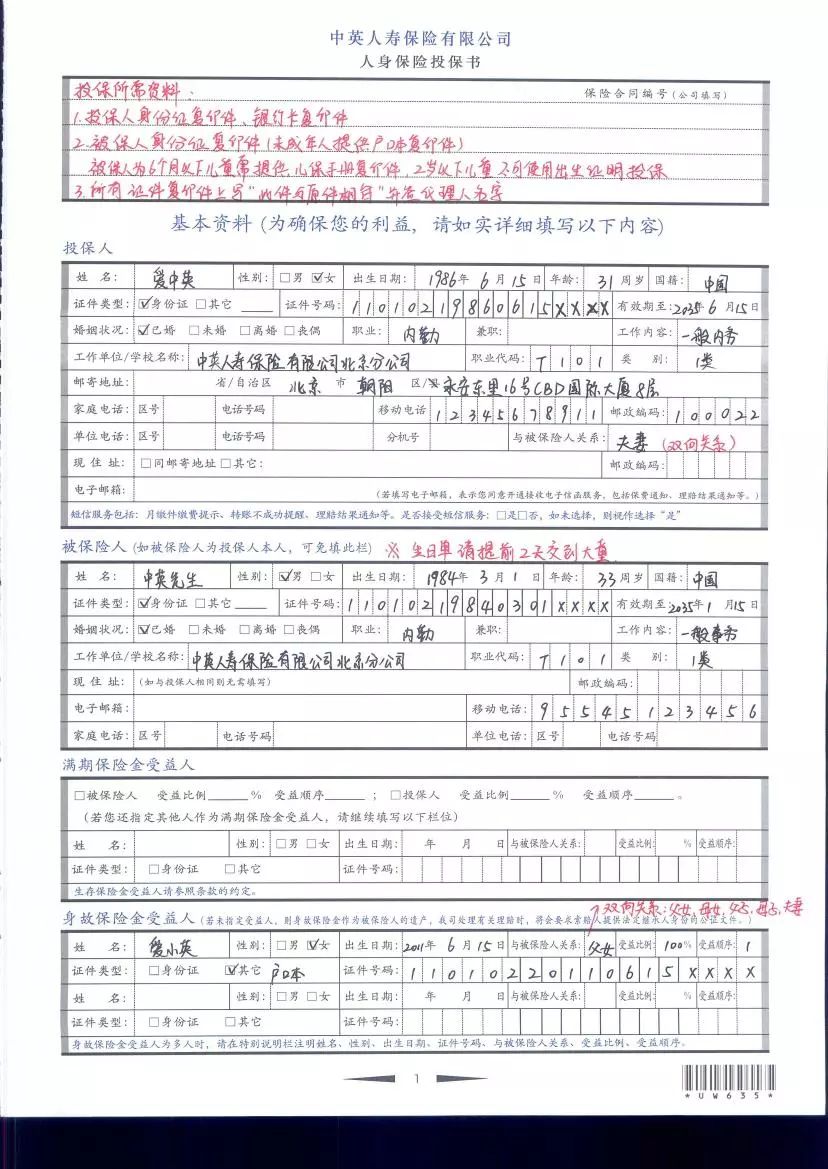 中英人寿保险有限公司
人身保险投保书
投保所需资料: 保险合同编号(公司填写)
1.投保人身份证复印件、银行卡复印件
2.被保人身份证复印件(未成年人提供户口本复印件)
被保人为6个月以下儿童需提供儿保手册复印件,2岁以下儿童不可使用出生证明投保
3.所有证件复印件上写“此件与原件相符”并签代理人名字
基本资料(为确保您的利益,请如实详细填写以下内容)
投保人
姓 名: 爱中英 性别: □男 ☑女 出生日期: 1986年 6月 15日 年龄: 31周岁 国籍: 中国
证件类型: ☑身份证 □其它____ 证件号码: 11010219860615XXXX 有效期至: 2035年 6月 15日
婚姻状况: ☑已婚 □未婚 □离婚 □丧偶 职业: 内勤 兼职: 工作内容: 一般内务
工作单位/学校名称: 中英人寿保险有限公司北京分公司 职业代码: T101 类 别: 1类
邮寄地址: 省/自治区 北京 市 朝阳 区/县 永安东里16号CBD国际大厦8层
家庭电话: 区号 电话号码 移动电话 12345678911 邮政编码: 100022
单位电话: 区号 电话号码 分机号 与被保险人关系: 夫妻 (双向关系)
现 住 址: □同邮寄地址 □其它: 邮政编码:
电子邮箱: (若填写电子邮箱,表示您同意开通接收电子信函服务,包括保费通知、理赔结果通知等。)
短信服务包括: 月缴件缴费提示、转账不成功提醒、理赔结果通知等。是否接受短信服务: □是□否,如未选择,则视作选择“是”
被保险人(如被保险人为投保人本人,可免填此栏) ※ 生日单请提前2天交到大童
姓 名: 中英先生 性别: ☑男 □女 出生日期: 1984年 3月 1日 年龄: 33周岁 国籍: 中国
证件类型: ☑身份证 □其它____ 证件号码: 11010219840301XXXX 有效期至: 2035年 1月 15日
婚姻状况: ☑已婚 □未婚 □离婚 □丧偶 职业: 内勤 兼职: 工作内容: 一般事务
工作单位/学校名称: 中英人寿保险有限公司北京分公司 职业代码: T101 类 别: 1类
现 住 址: (如与投保人相同则无需填写) 邮政编码:
电子邮箱: 移动电话: 95545123456
家庭电话: 区号 电话号码 单位电话: 区号 电话号码
满期保险金受益人
□被保险人 受益比例____% 受益顺序____; □投保人 受益比例____% 受益顺序____。
(若您还指定其他人作为满期保险金受益人,请继续填写以下栏位)
姓 名: 性别: □男 □女 出生日期: 年 月 日 与被保险人关系: 受益比例: % 受益顺序:
证件类型: □身份证 □其它 证件号码:
生存保险金受益人请参照条款的约定。
双向关系: 父女, 母女, 父子, 母子, 夫妻
身故保险金受益人(若未指定受益人,则身故保险金作为被保险人的遗产,我司处理有关理赔时,将会要求索赔人提供法定继承人身份的公证文件。)
姓 名: 爱小英 性别: □男 ☑女 出生日期: 2011年 6月 15日 与被保险人关系: 父女 受益比例: 100% 受益顺序: 1
证件类型: □身份证 ☑其它 户口本 证件号码: 11010220110615XXXX
姓 名: 性别: □男 □女 出生日期: 年 月 日 与被保险人关系: 受益比例: % 受益顺序:
证件类型: □身份证 □其它 证件号码:
身故保险金受益人为多人时,请在特别说明栏注明姓名、性别、出生日期、证件号码、与被保险人关系、受益比例、受益顺序。
1
*UW635*